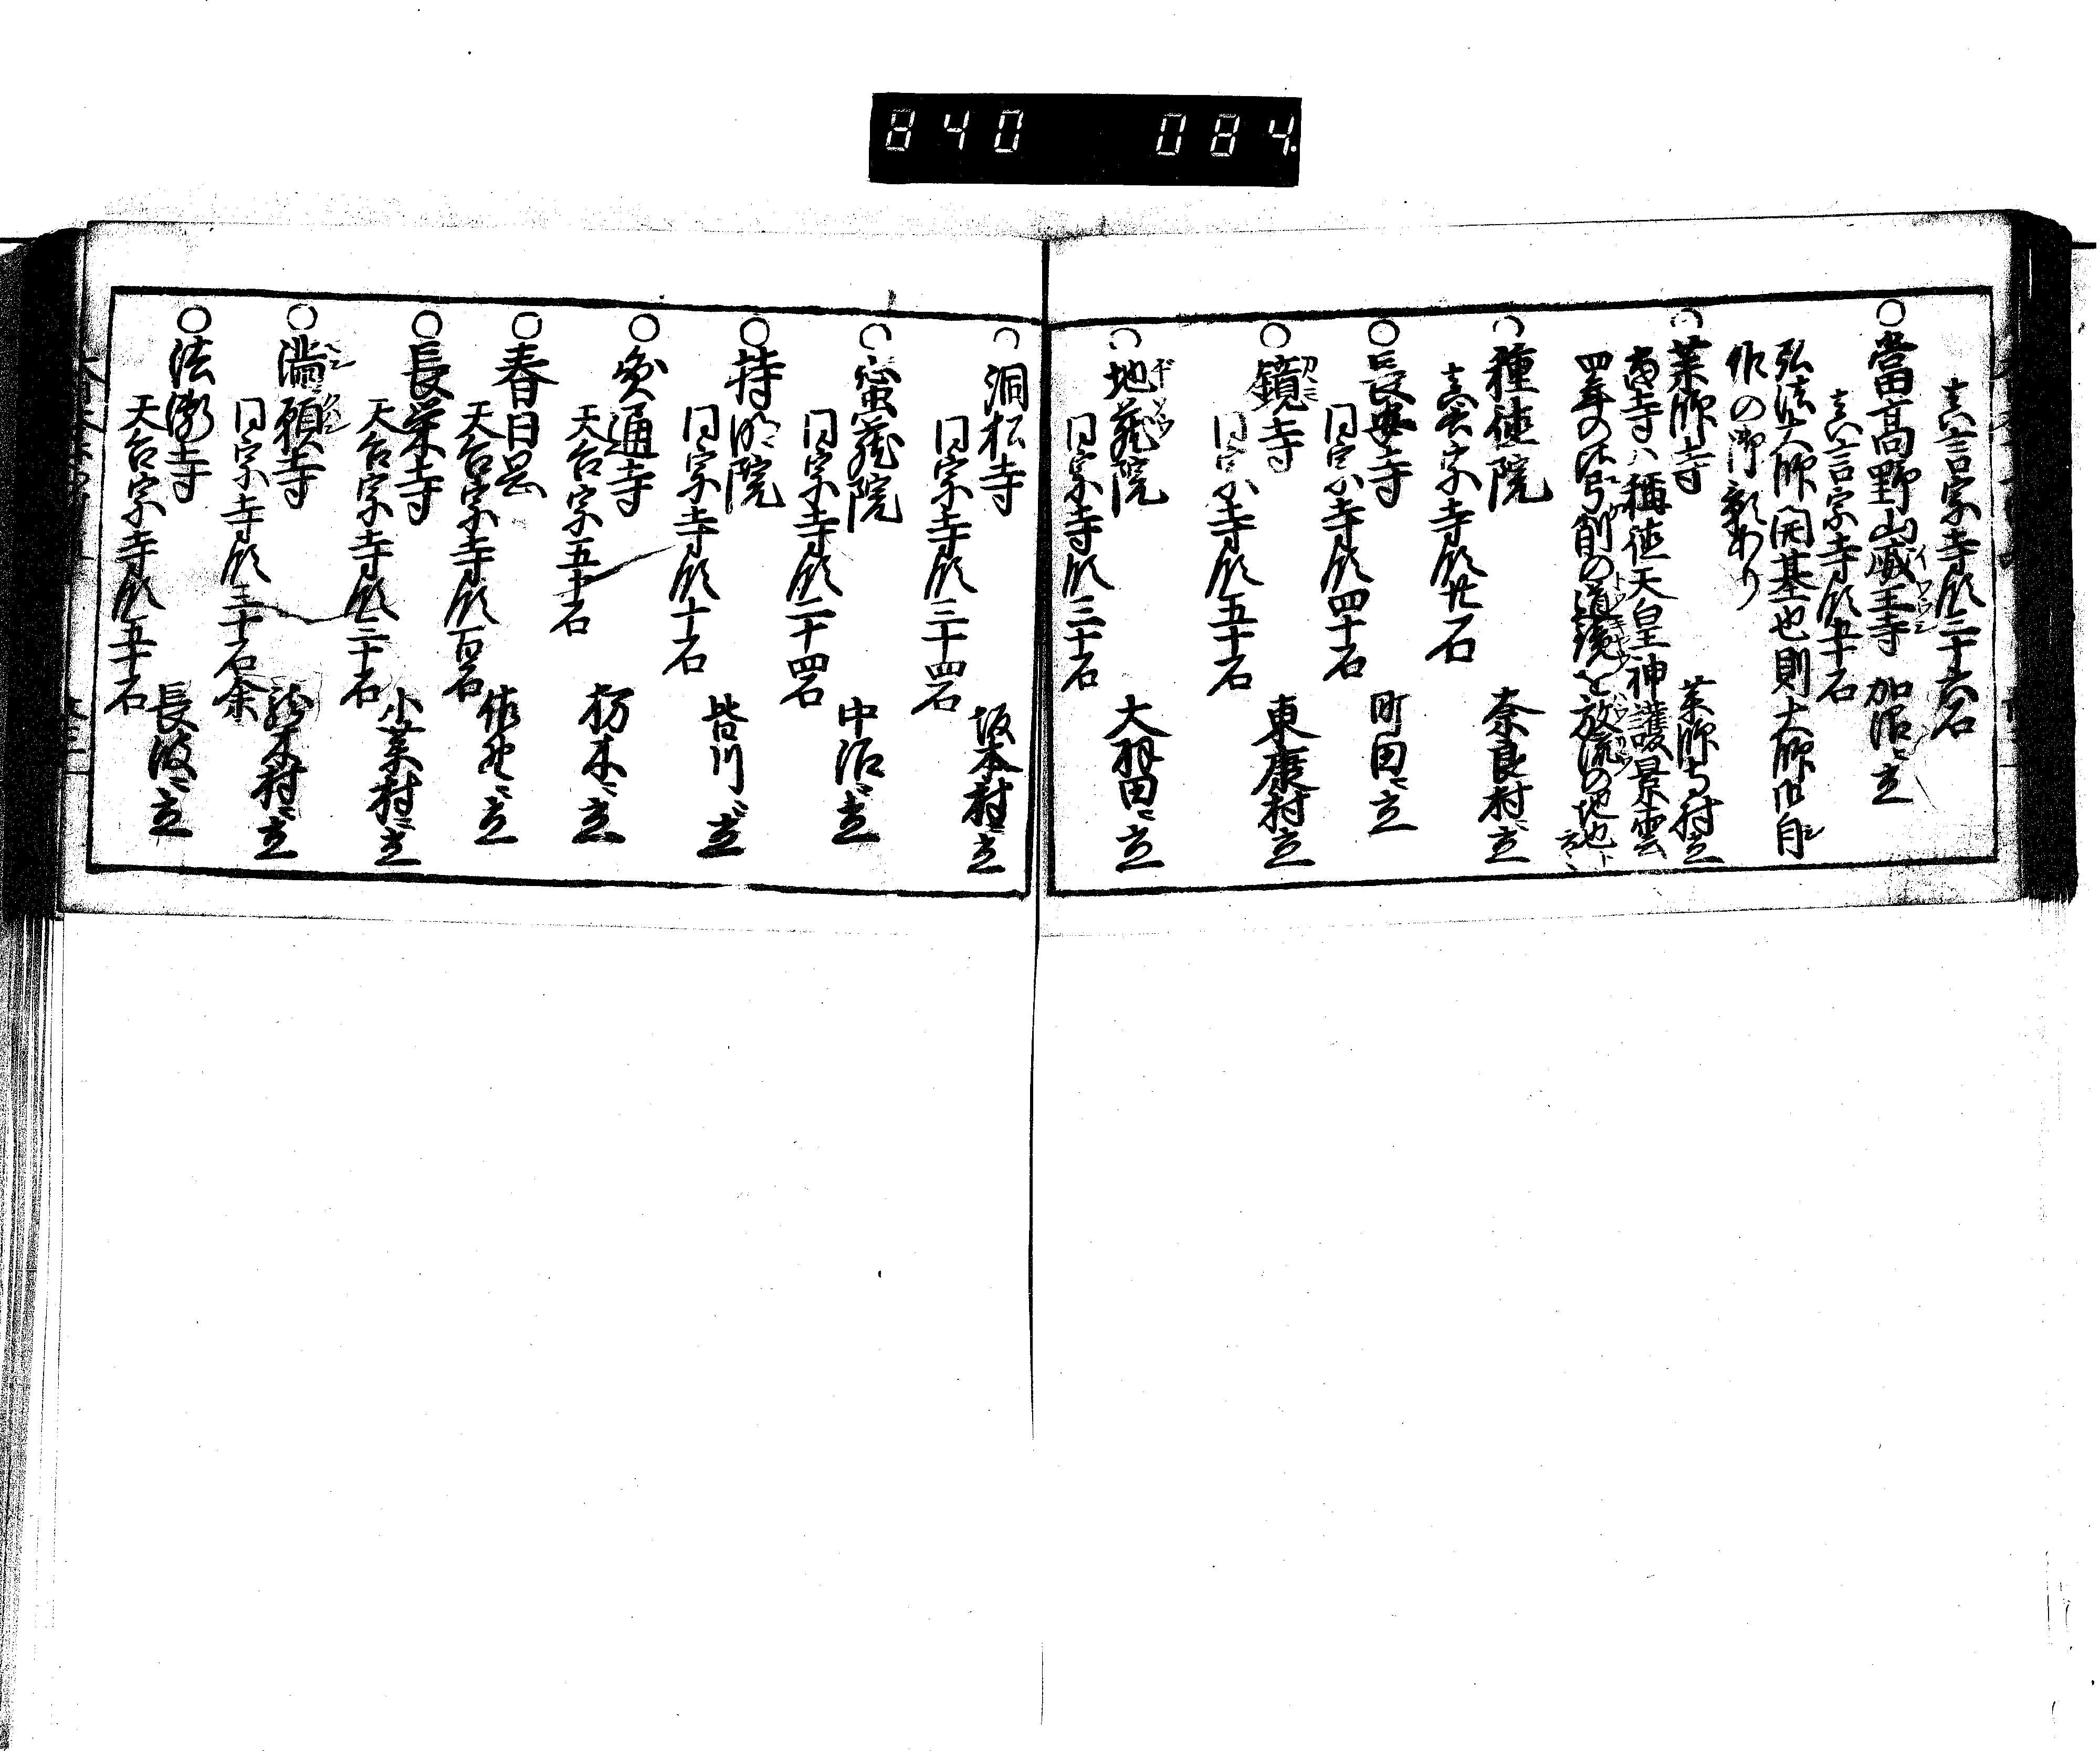 840 084
真言宗寺領二十六石
○當高野山威王寺 加沼ニ立
真言宗寺領五十石
弘法大師開基也則大師御自
作の御影あり
○薬師寺 薬師寺村立
當寺ハ稱徳天皇神護景雲
四年の比弓削の道鏡を放流の地也ト云々
○種徳院 奈良村ニ立
真言宗寺領廿石
○長興寺 町田ニ立
同宗寺領四十石
○鏡寺 東康村立
同宗寺領五十石
○地蔵院 大羽田ニ立
同宗寺領三十石
○洞松寺 坂本村ニ立
同宗寺領三十四石
○蜜蔵院 中沼ニ立
同宗寺領二十四石
○持明院 皆川ニ立
同宗寺領十石
○圓通寺 杤木ニ立
天台宗五十石
○春日岡 佐野ニ立
天台宗寺領百石
○長栄寺 小薬村ニ立
天台宗寺領三十石
○満願寺 村ニ立
同宗寺領三十石余
○法幢寺 長沼ニ立
天台宗寺領五十石